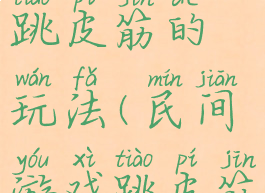 tiào pí jīn de
跳皮筋的
wán fǎ mín jiān
玩法(民间
yóu xì tiào pí jīn
游戏跳皮筋